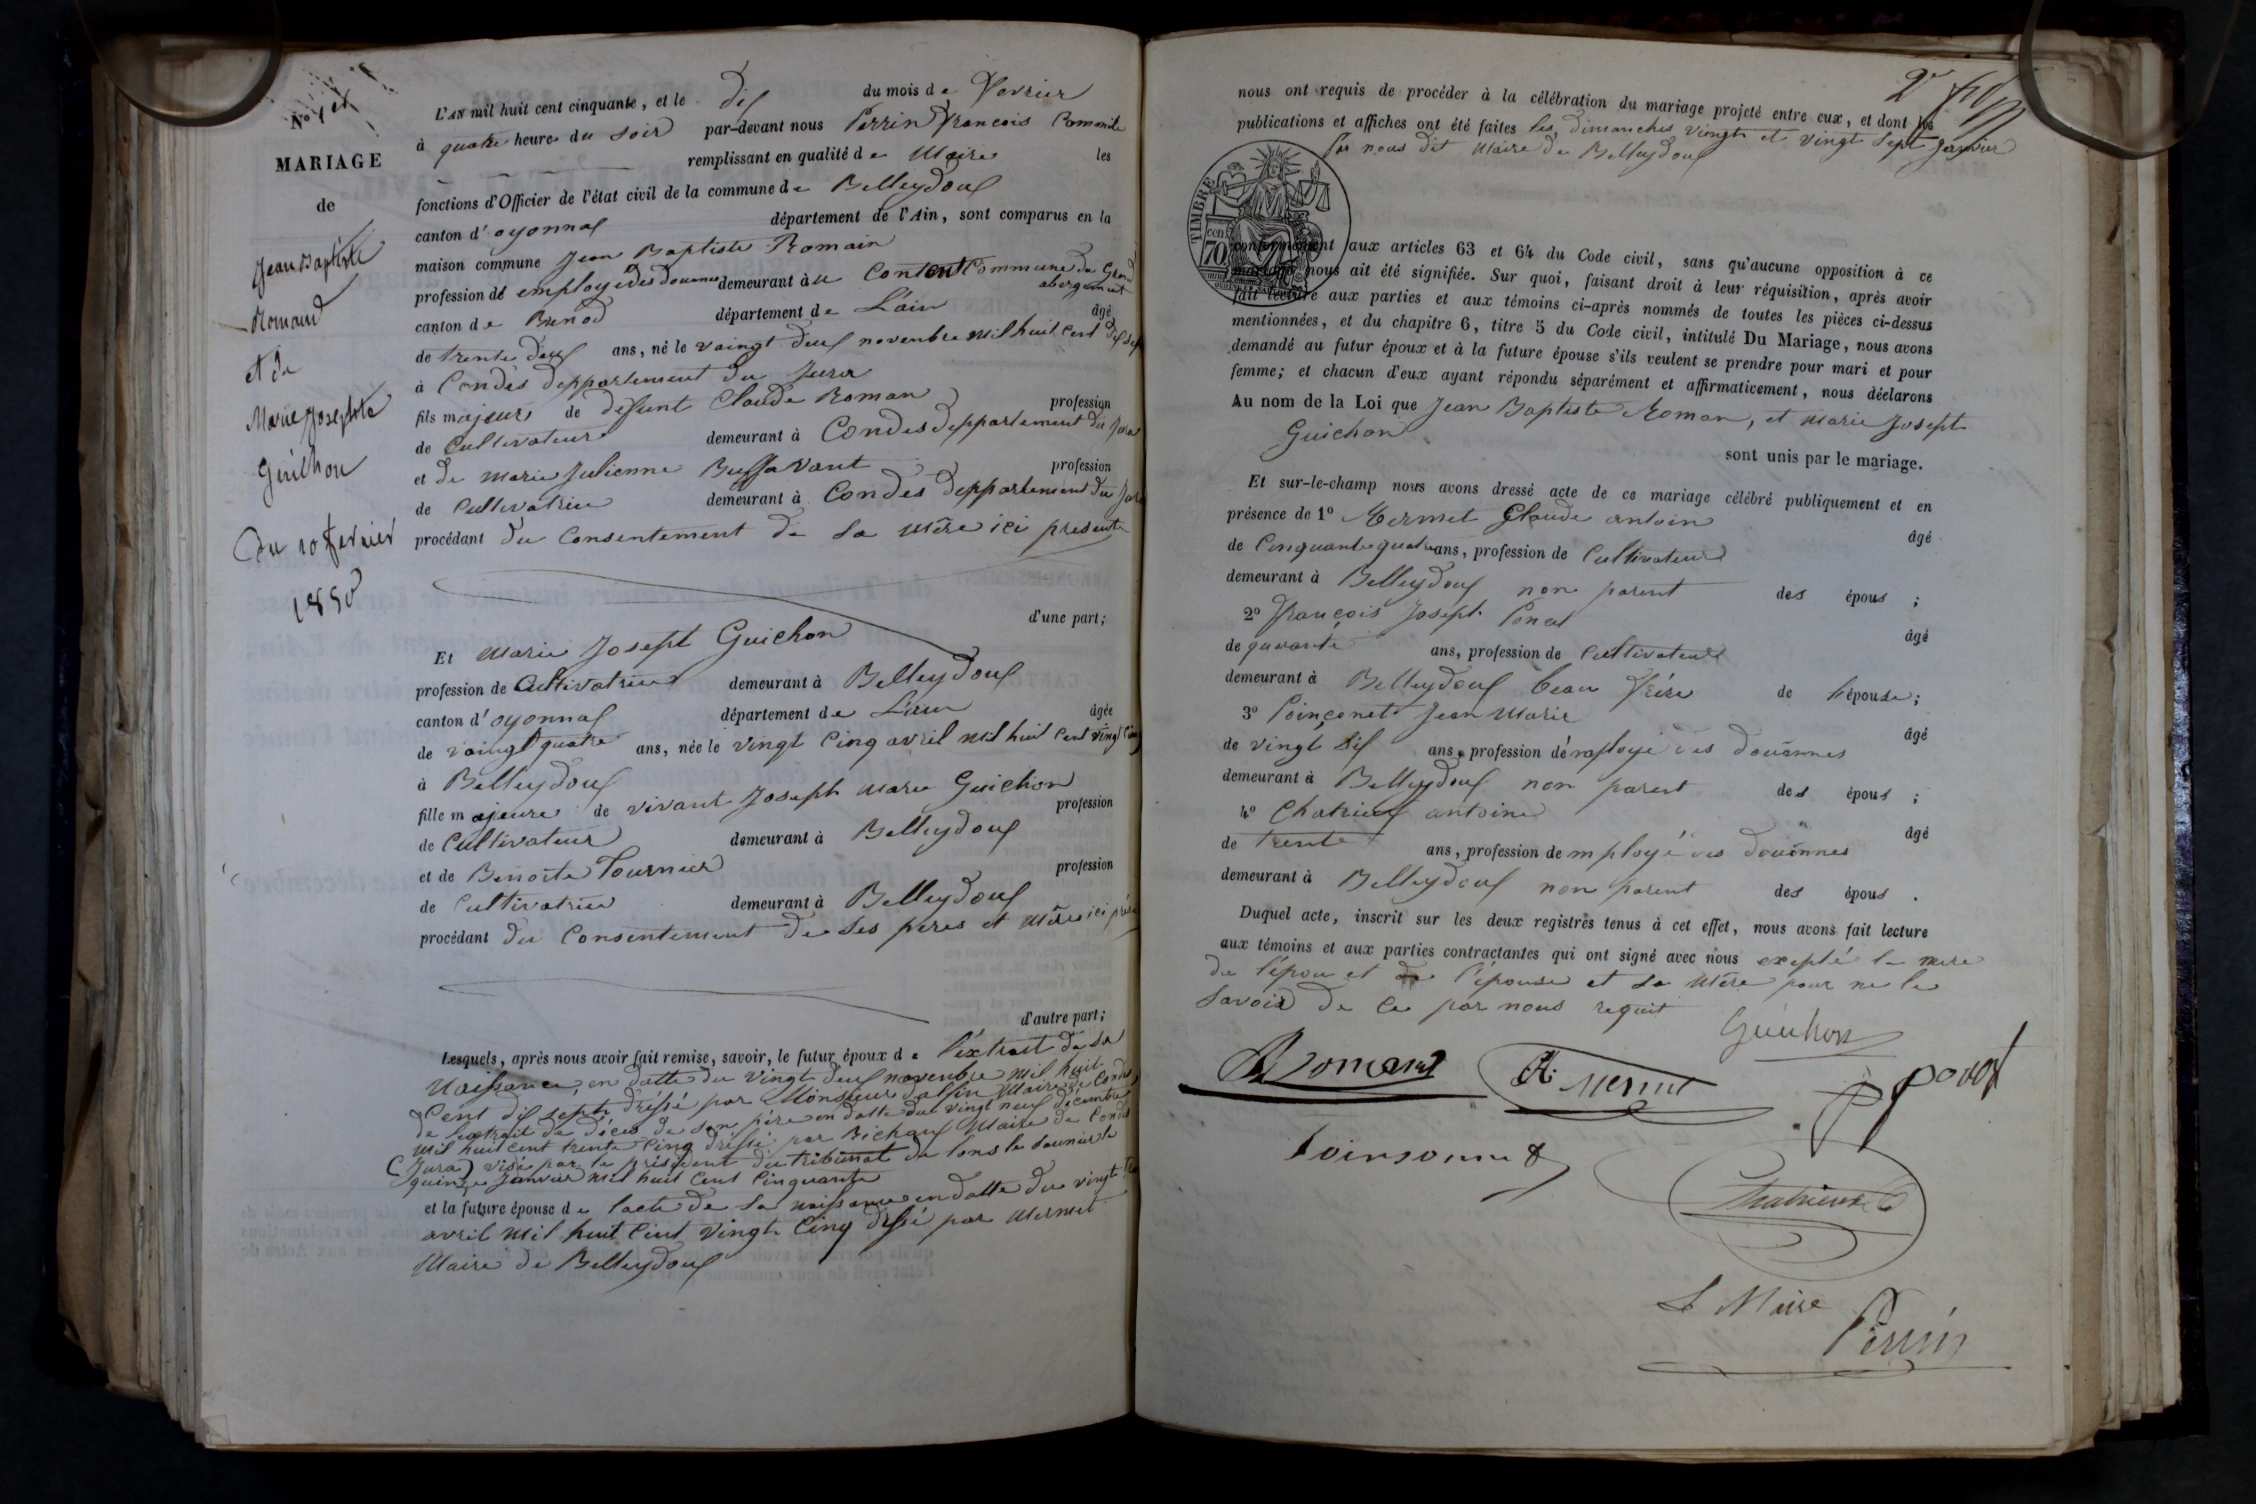 No 1er
MARIAGE
de
Jean Baptiste
Romand
et de
Marie Josephte
Guichon
Du 10 fevrier
1850
L'AN mil huit cent cinquante, et le dix du mois de Fevrier
à quatre heures du soir par-devant nous Perrin François
remplissant en qualité de Maire les
fonctions d'Officier de l'état civil de la commune de Belleydoux
canton d'oyonnax département de l'Ain, sont comparus en la
maison commune Jean Baptiste Romain
profession de employé des douanes demeurant au Content Commune du Grand abergement
canton de Brenod département de L'ain âgé
de trente deux ans, né le vaingt deux novembre mil huit Cent dix sept
à Condes deppartement du Jura
fils majeur de defunt Claude Roman profession
de Cultivateur demeurant à Condes deppartement du Jura
et de marie Julienne Buffavant profession
de Cultivatrice demeurant à Condes deppartement du Jura
procédant du Consentement de sa Mère ici presente
d'une part;
Et marie Joseph Guichon
profession de Cultivatrice demeurant à Belleydoux
canton d'oyonnax département de L'ain âgée
de vaingt quatre ans, née le vingt Cinq avril mil huit Cent vingt Cinq
à Belleydoux
fille majeure de vivant Joseph Marie Guichon
profession
de Cultivateur demeurant à Belleydoux
et de Benoite Tournier profession
de Cultivatrice demeurant à Belleydoux
procédant du Consentement de ses peres et Mère ici
d'autre part;
Lesquels, après nous avoir fait remise, savoir, le futur époux de l'éxtrait de sa
Naissance, en datte du vingt deux novembre mil huit
Cent dix sept dréssé par Monsieur Maire de Condes
de l'extrait de déces de son pére en datte du vingt neuf décembre
mil huit cent trente Cinq dréssé par Maire de Condes
(Jura) visé par le président du tribunat de lons le saunier le
quinze Janvier mil huit Cent Cinquante
et la future épouse de lacte de sa naissance en datte du vingt
avril mil huit Cent vingt Cinq dréssé par Mermet
Maire de Belleydoux
2e
nous ont requis de procéder à la célébration du mariage projeté entre eux, et dont les
publications et affiches ont été faites les dimanches vingt et vingt sept Janvier
Par nous dit Maire de Belleydoux
TIMBRE
70 cen.
conformément aux articles 63 et 64 du Code civil, sans qu'aucune opposition à ce
mariage nous ait été signifiée. Sur quoi, faisant droit à leur réquisition, après avoir
fait lecture aux parties et aux témoins ci-après nommés de toutes les pièces ci-dessus
mentionnées, et du chapitre 6, titre 5 du Code civil, intitulé Du Mariage, nous avons
demandé au futur époux et à la future épouse s'ils veulent se prendre pour mari et pour
femme; et chacun d'eux ayant répondu séparément et affirmativement, nous déclarons
Au nom de la Loi que Jean Baptiste Roman, et marie Joseph
Guichon
sont unis par le mariage.
Et sur-le-champ nous avons dressé acte de ce mariage célébré publiquement et en
présence de 1o Mermet Claude antoin
âgé
de Cinquante quatre ans, profession de Cultivateur
demeurant à Belleydoux non parent des époux ;
2o François Joseph Poncet
âgé
de quarante ans, profession de Cultivateur
demeurant à Belleydoux beau frére de l'épouse ;
3o Poinçonet Jean Marie
âgé
de vingt six ans, profession d'employé des douannes
demeurant à Belleydoux non parent des époux ;
4o Chatrieux antoine
âgé
de trente ans, profession de mployé des douannes
demeurant à Belleydoux non parent des époux .
Duquel acte, inscrit sur les deux registres tenus à cet effet, nous avons fait lecture
aux témoins et aux parties contractantes qui ont signé avec nous excepté la mere
de l'épou et de l'épouse et sa Mére pour ne le
savoir de ce par nous requit
Guichon
Romand
Mermet
Poinsonnet
Chatrieux
Le Maire
Perrin